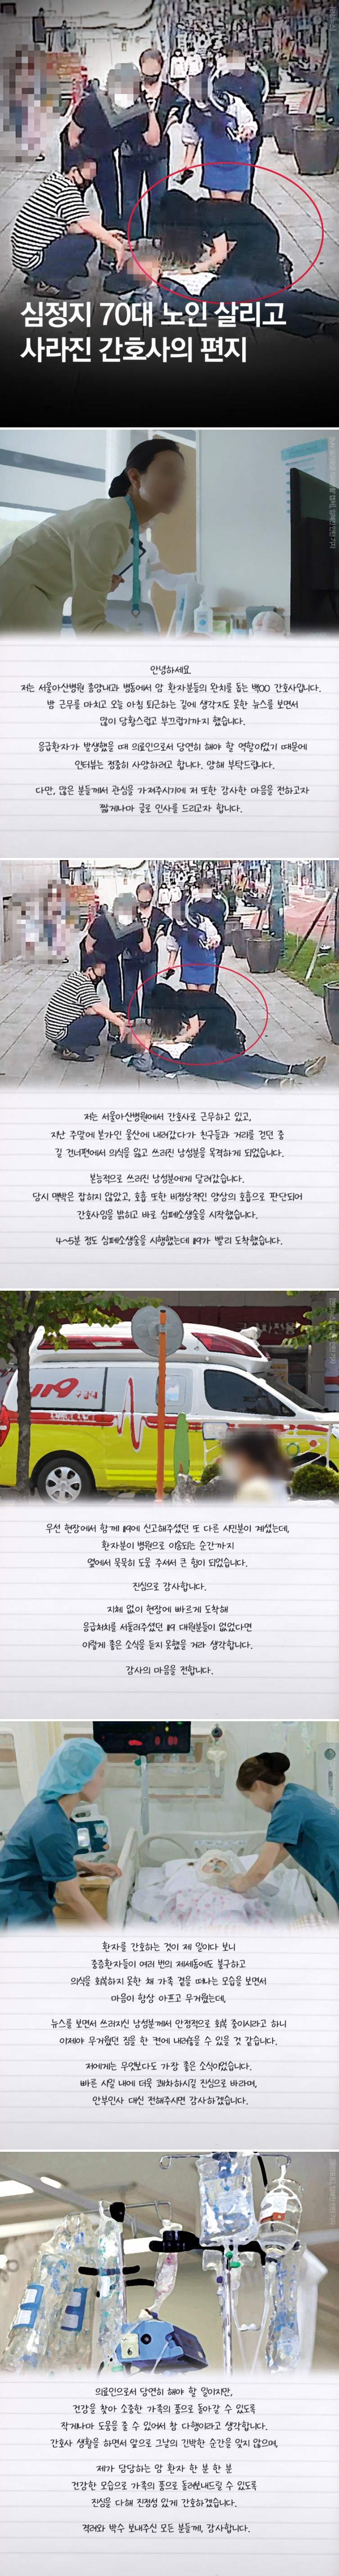 심정지 70대 노인 살리고
사라진 간호사의 편지
안녕하세요.
저는 서울아산병원 종양내과 병동에서 암 환자분들의 완치를 돕는 백OO 간호사입니다.
밤 근무를 마치고 오늘 아침 퇴근하는 길에 생각지도 못한 뉴스를 보면서
많이 당황스럽고 부끄럽기까지 했습니다.
응급환자가 발생했을 때 의료인으로서 당연히 해야 할 역할이었기 때문에
인터뷰는 정중히 사양하려고 합니다. 양해 부탁드립니다.
다만, 많은 분들께서 관심을 가져주시기에 저 또한 감사한 마음을 전하고자
짧게나마 글로 인사를 드리고자 합니다.
저는 서울아산병원에서 간호사로 근무하고 있고,
지난 주말에 본가인 울산에 내려갔다가 친구들과 거리를 걷던 중
길 건너편에서 의식을 잃고 쓰러진 남성분을 목격하게 되었습니다.
본능적으로 쓰러진 남성분에게 달려갔습니다.
당시 맥박은 잡히지 않았고, 호흡 또한 비정상적인 양상의 호흡으로 판단되어
간호사임을 밝히고 바로 심폐소생술을 시작했습니다.
4~5분 정도 심폐소생술을 시행했는데 119가 빨리 도착했습니다.
119
우선 현장에서 함께 119에 신고해주셨던 또 다른 시민분이 계셨는데,
환자분이 병원으로 이송되는 순간까지
옆에서 묵묵히 도움 주셔서 큰 힘이 되었습니다.
진심으로 감사합니다.
지체 없이 현장에 빠르게 도착해
응급처치를 서둘러주셨던 119 대원분들이 없었다면
이렇게 좋은 소식을 듣지 못했을 거라 생각합니다.
감사의 마음을 전합니다.
환자를 간호하는 것이 제 일이다 보니
중증환자들이 여러 번의 제세동에도 불구하고
의식을 회복하지 못한 채 가족 곁을 떠나는 모습을 보면서
마음이 항상 아프고 무거웠는데,
뉴스를 보면서 쓰러지신 남성분께서 안정적으로 회복 중이시라고 하니
이제야 무거웠던 짐을 한 켠에 내려놓을 수 있을 것 같습니다.
저에게는 무엇보다도 가장 좋은 소식이었습니다.
빠른 시일 내에 더욱 쾌차하시길 진심으로 바라며,
안부인사 대신 전해주시면 감사하겠습니다.
의료인으로서 당연히 해야 할 일이지만,
건강을 찾아 소중한 가족의 품으로 돌아갈 수 있도록
작게나마 도움을 줄 수 있어서 참 다행이라고 생각합니다.
간호사 생활을 하면서 앞으로 그날의 긴박한 순간을 잊지 않으며,
제가 담당하는 암 환자 한 분 한 분
건강한 모습으로 가족의 품으로 돌려보내드릴 수 있도록
진심을 다해 진정성 있게 간호하겠습니다.
격려와 박수 보내주신 모든 분들께, 감사합니다.